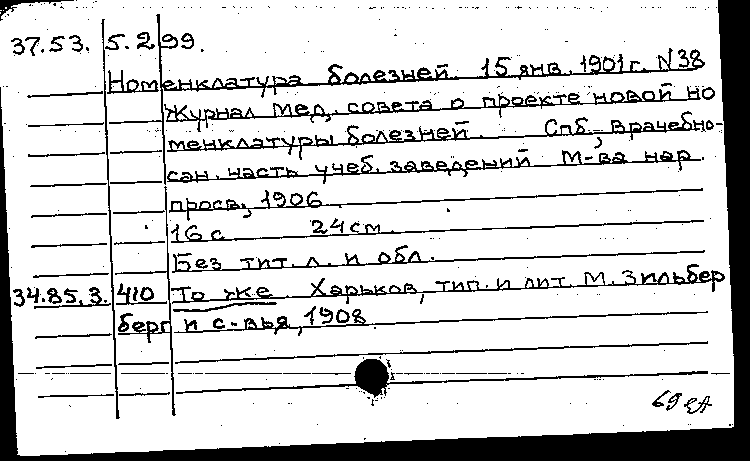 37.53. 5.2.99.
Номенклатура болезней. 15 янв. 1901 г. N38
Журнал Мед. совета о проекте новой но
менклатуры болезней. Спб., Врачебно-
сан. часть учеб. заведений М-ва нар.
просв., 1906.
16 с 24 см.
Без тит. л. и обл.
34.85.3. 410 То же. Харьков, тип. и лит. М. Зильбер
берг и с-вья, 1908
69